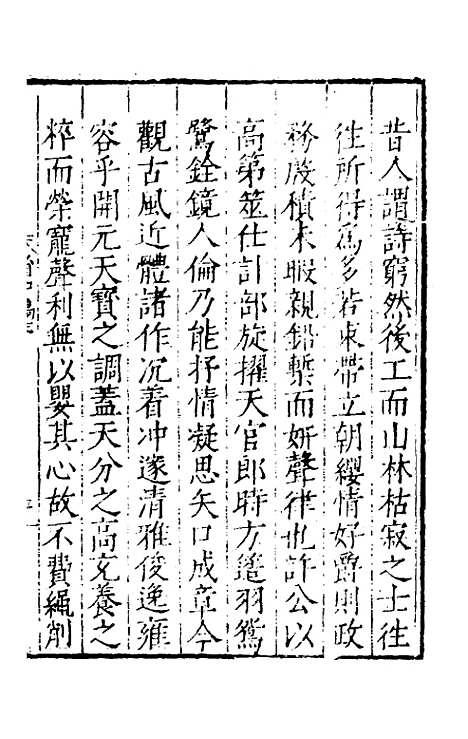 昔人謂詩窮然後工而山林枯寂之士往
往所得為多若束帶立朝纓情好爵則政
務殷積未暇親鉛槧而妍聲律也許公以
高第筮仕計部旋擢天官郎時方簉羽鴛
鷺銓鏡人倫乃能抒情凝思矢口成章今
觀古風近體諸作沉着冲邃清雅俊逸雍
容乎開元天寶之調蓋天分之高充養之
粹而榮寵聲利無以嬰其心故不費繩削